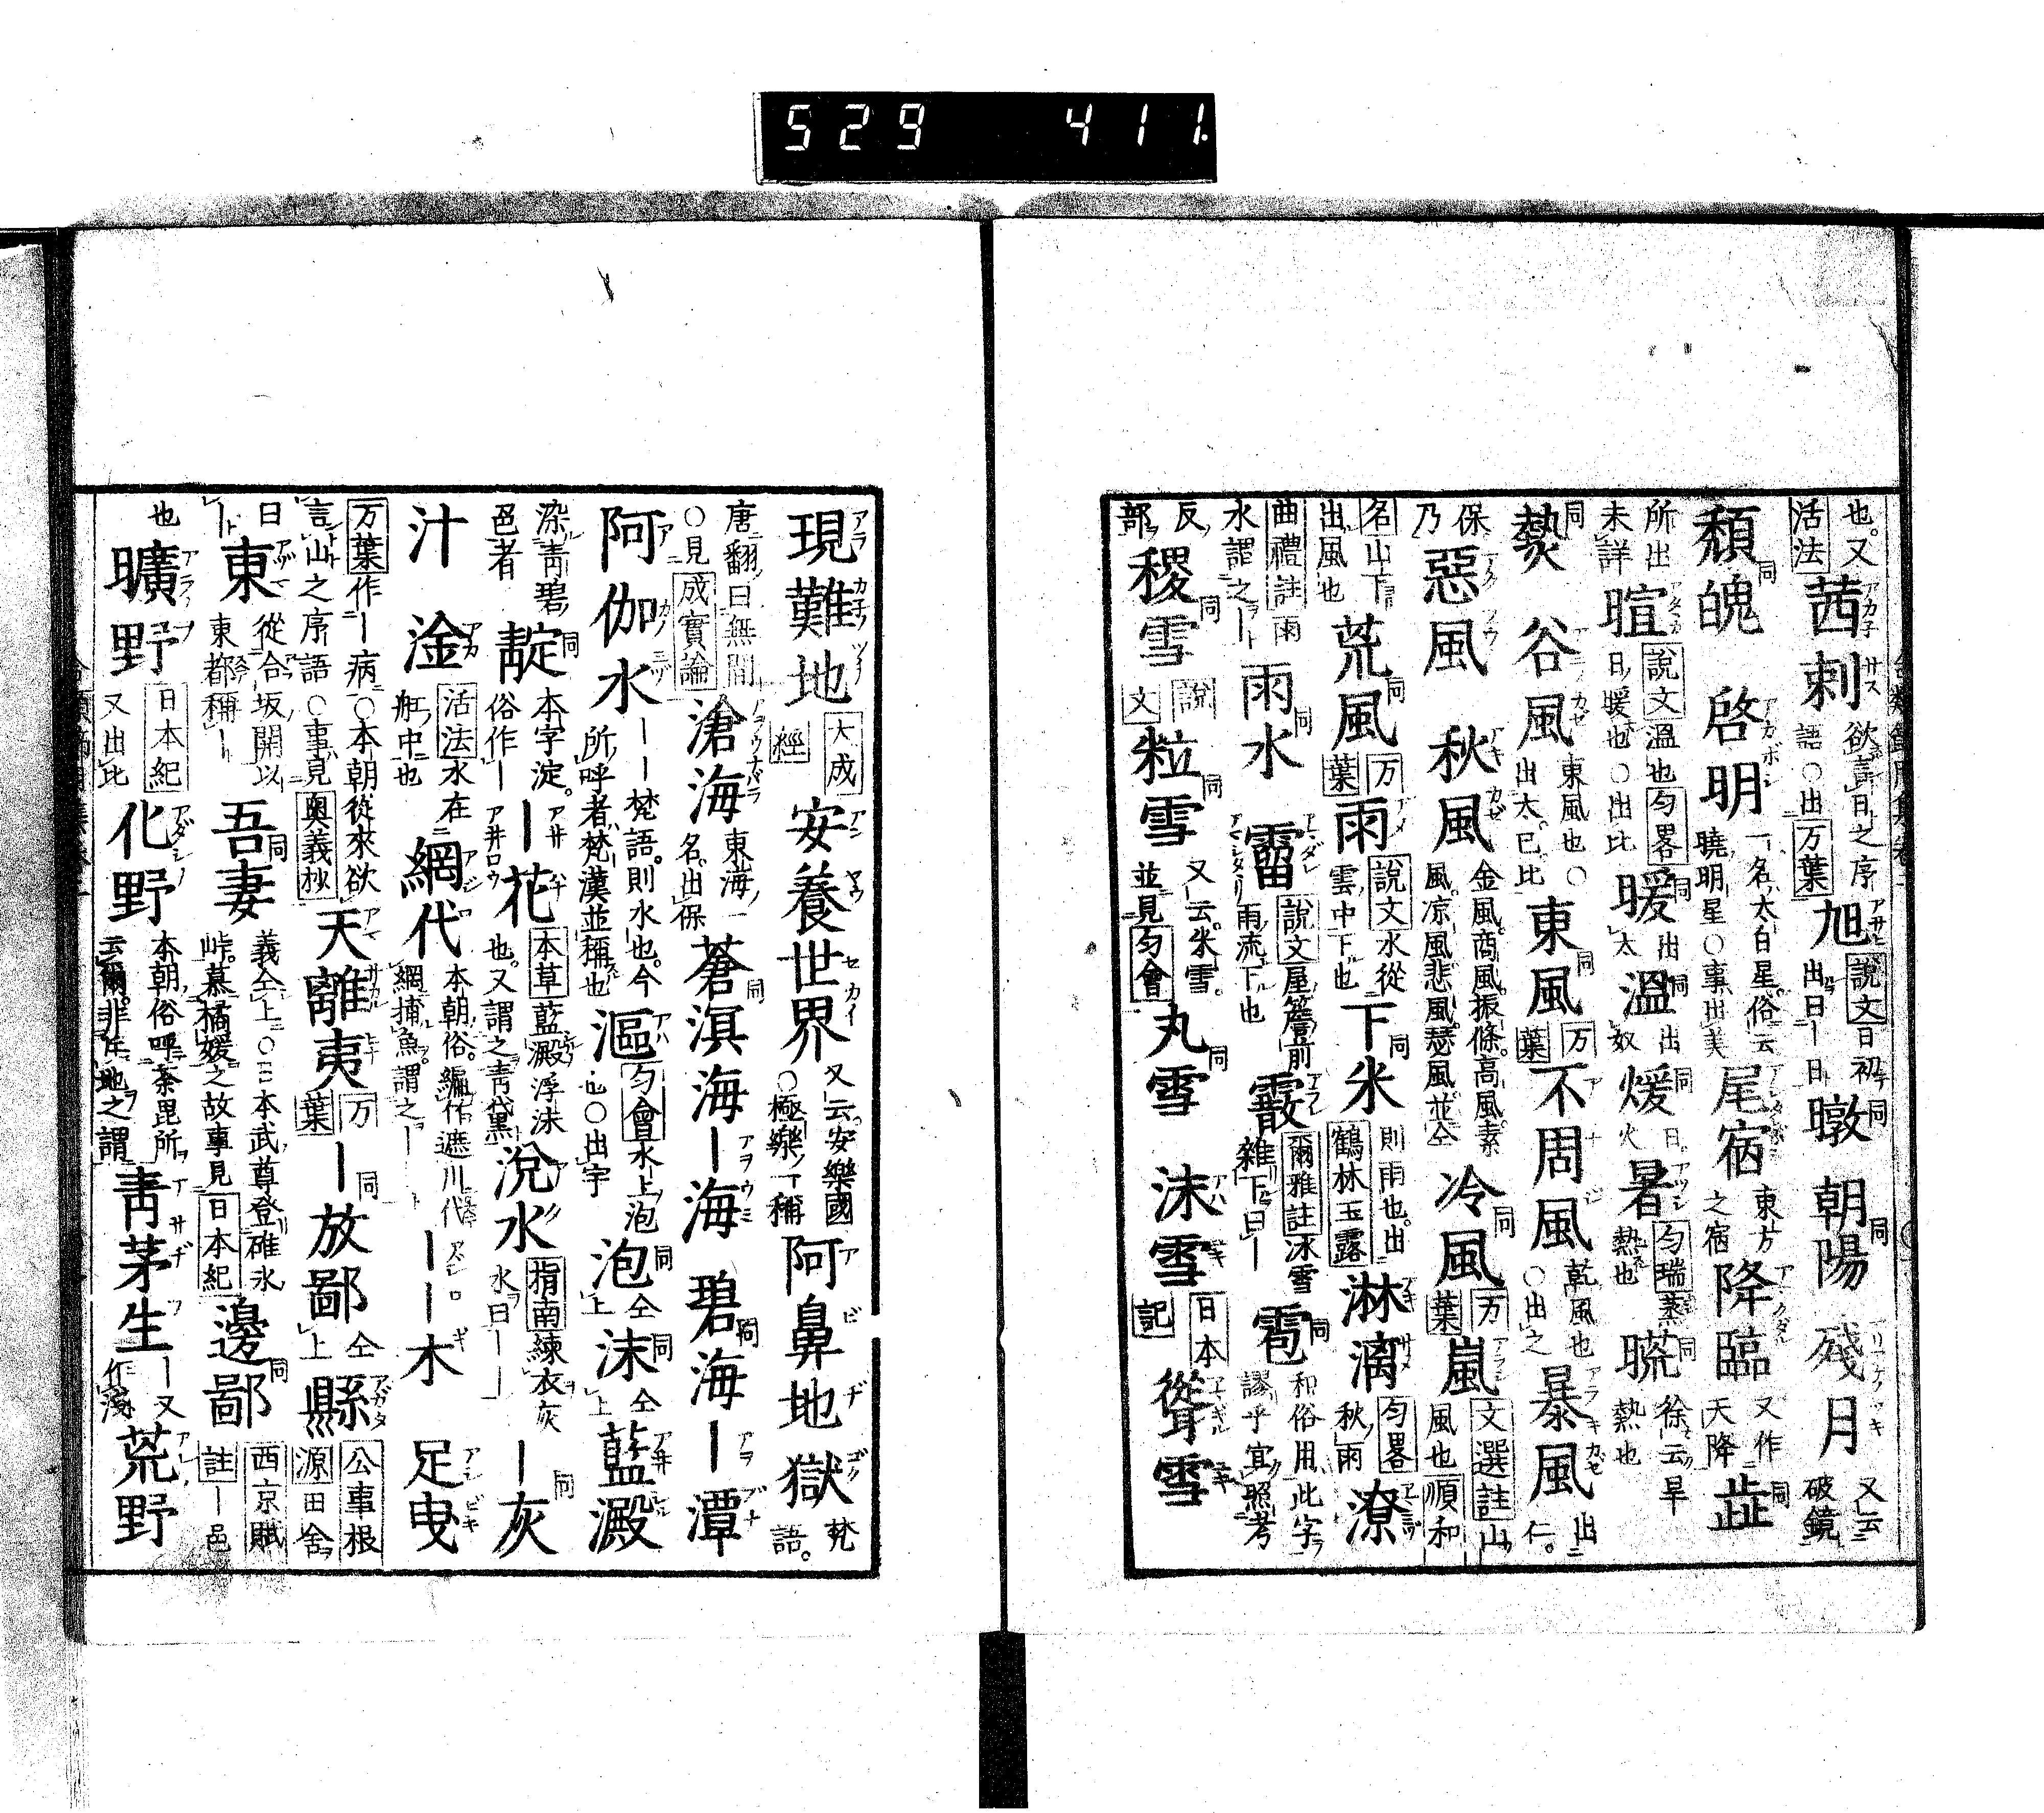 529 411
也。又活法 茜刺 欲責日之序語○出万葉 旭 說文日初出曰ー日 暾 同 朝陽 同 殘月 又云破鏡
頽 魄 同 啓明 一名太白星。俗云曉明星○事出美 尾宿 東方之宿 降臨 又作天降 同
所出未詳 暄 說文溫也匀畧日暖也○出比 暖 同 出太 溫 同 出奴 煖 同 日火 暑 匀瑞蒸熱也 同 徐云旱熱也
同 谷風 東風也○出太。已比 東風 同 万葉 不周風 乾風也○出之 暴風 出仁。
保乃 惡風 秋風 金風。商風。振條。高風。素風。凉風。悲風。瑟風。並仝 冷風 同 万葉 嵐 文選註山風也順和
名山下出風也 荒風 同 万葉 雨 說文水從雲中下也 下米 同 則雨也。出鶴林玉露 淋漓 匀畧秋雨 潦
曲禮註雨水謂之ー 雨水 同 霤 說文屋簷前雨流下也 霰 爾雅註冰雪雜下曰ー 雹 同 和俗用此字謬乎宜照考
反部 稷雪 同 說文 粒雪 同 又云米雪。並見匀會 丸雪 同 沫雪 日本記 聳雪
現難地 大成經 安養世界 又云安樂國○極樂ノ一稱 阿鼻地獄 梵語。
唐翻曰無間○見成實論 滄海 東海ノ一名。出保 蒼溟海 同 ー海 碧海 同 ー潭
阿伽水 ーー梵語。則水也。今所呼者梵漢並稱也 漚 匀會水上泡也○出宇 泡 同 仝上 沫 同 仝上 藍澱
染青碧邑者 靛 同 本字淀。俗作ー ー花 本草藍澱浮沫也。又謂之青黛 涗水 指南練衣灰水曰ーー ー灰 同
汁 淦 活法水在舡中也 網代 本朝俗。編作遮川代網捕魚。謂之ーー ーー木 足曳
万葉作ー病○本朝從來欲言山之序語○事見奧義抄 天離夷 万葉 ー放鄙 同 仝上 縣 公事根源田舍
曰ー 東 從合坂開以東都稱ー 吾妻 同 義仝上○日本武尊登碓氷峠。慕橘媛之故事見日本紀 邊鄙 同 西京賦註ー邑
也 曠野 日本紀又出比 化野 本朝俗呼荼毘所云爾。非在地之謂 青茅生 ー又作淺 荒野